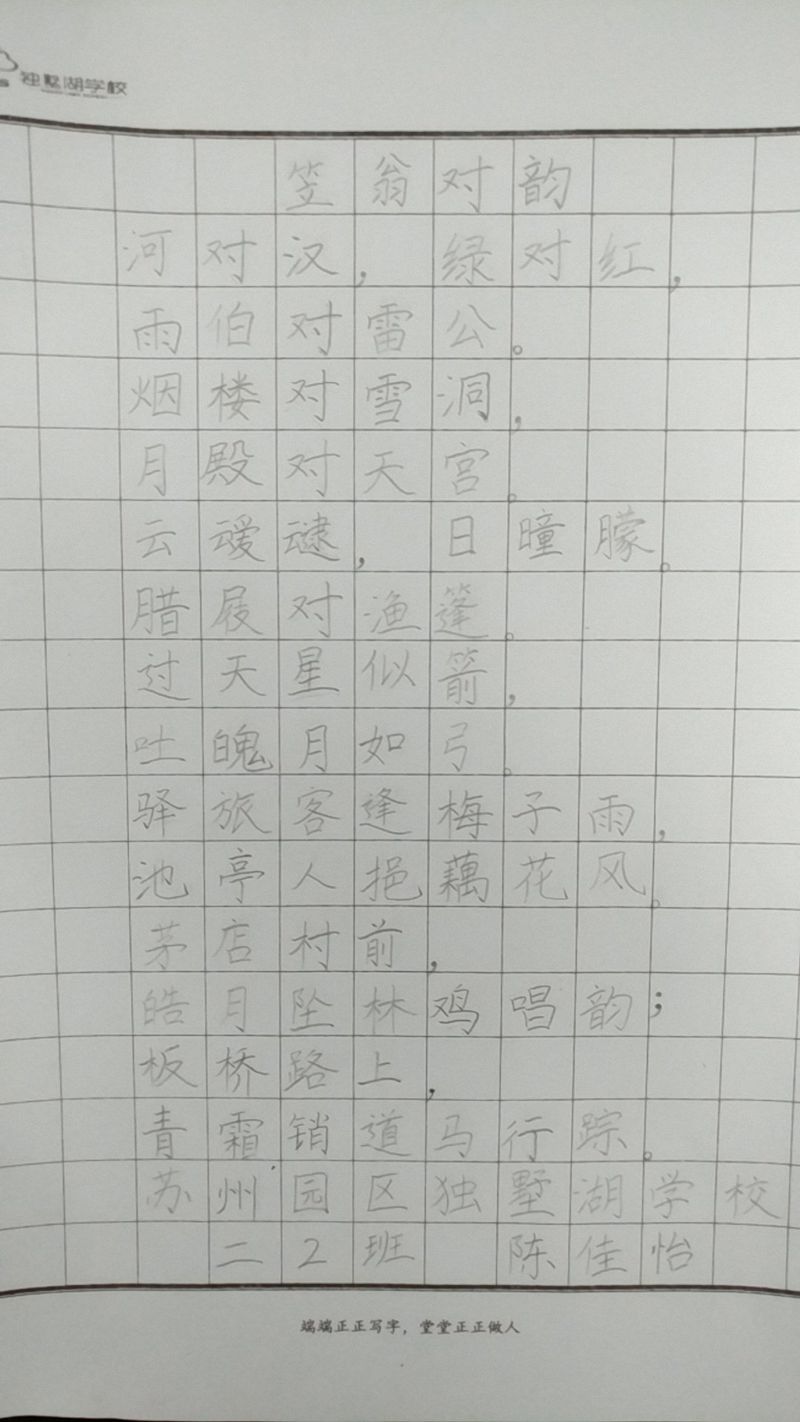 独墅湖学校
笠翁对韵
河对汉，绿对红，
雨伯对雷公。
烟楼对雪洞，
月殿对天宫。
云叆叇，日曈朦。
腊屐对渔篷。
过天星似箭，
吐魄月如弓。
驿旅客逢梅子雨，
池亭人挹藕花风。
茅店村前，
皓月坠林鸡唱韵；
板桥路上，
青霜销道马行踪。
苏州园区独墅湖学校
二2班 陈佳怡
端端正正写字，堂堂正正做人